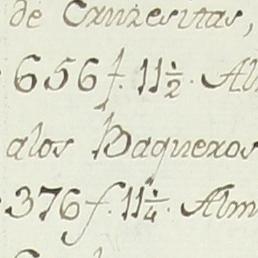 de Cruzesitas,
656f. 11½. Al
alos Baqueros
376f. 11¼. Alm